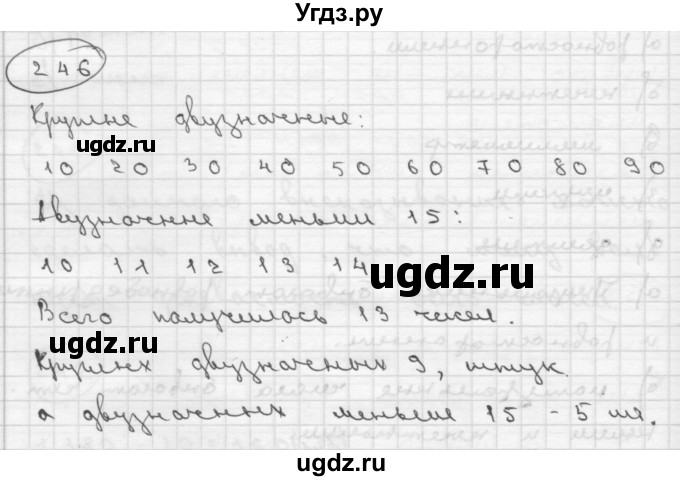 Угдз.ру
246
Круглые двузначные:
ugdz.ru
ugdz.ru
10 20 30 40 50 60 70 80 90
Двузначные меньши 15:
10 11 12 13 14
ugdz.ru
Всего получилось 13 чисел.
ugdz.ru
Круглых двузначных 9, штук
а двузначных меньше 15 - 5 шт.
ugdz.ru